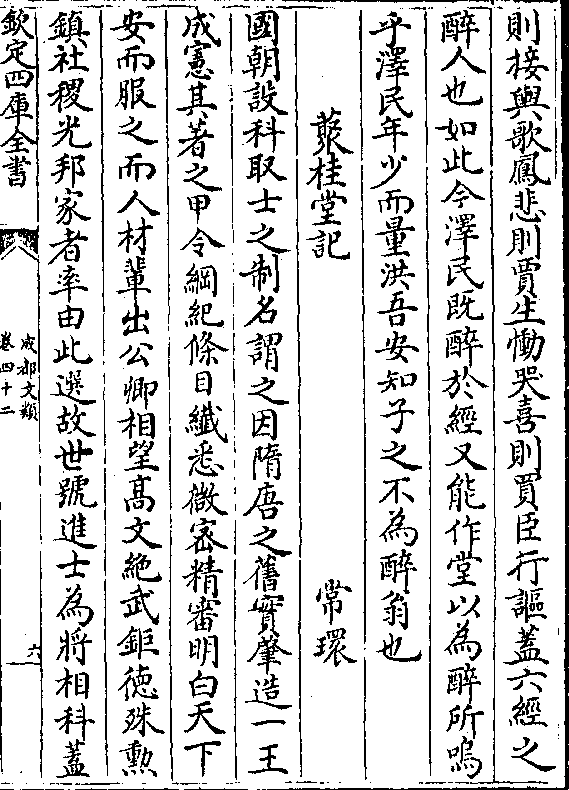 則接輿歌鳳悲則賈生慟哭喜則買臣行謳蓋六經之
醉人也如此今澤民既醉於經又能作堂以為醉所嗚
乎澤民年少而量洪吾安知子之不為醉翁也
蘂桂堂記 常環
國朝設科取士之制名謂之因隋唐之舊實肇造一王
成憲其著之甲令綱紀條目纖悉微宻精審明白天下
安而服之而人材輩出公卿相望髙文絶武鉅徳殊勲
鎮社稷光邦家者率由此選故世號進士為將相科蓋
欽定四庫全書
成都文類
卷四十二
六